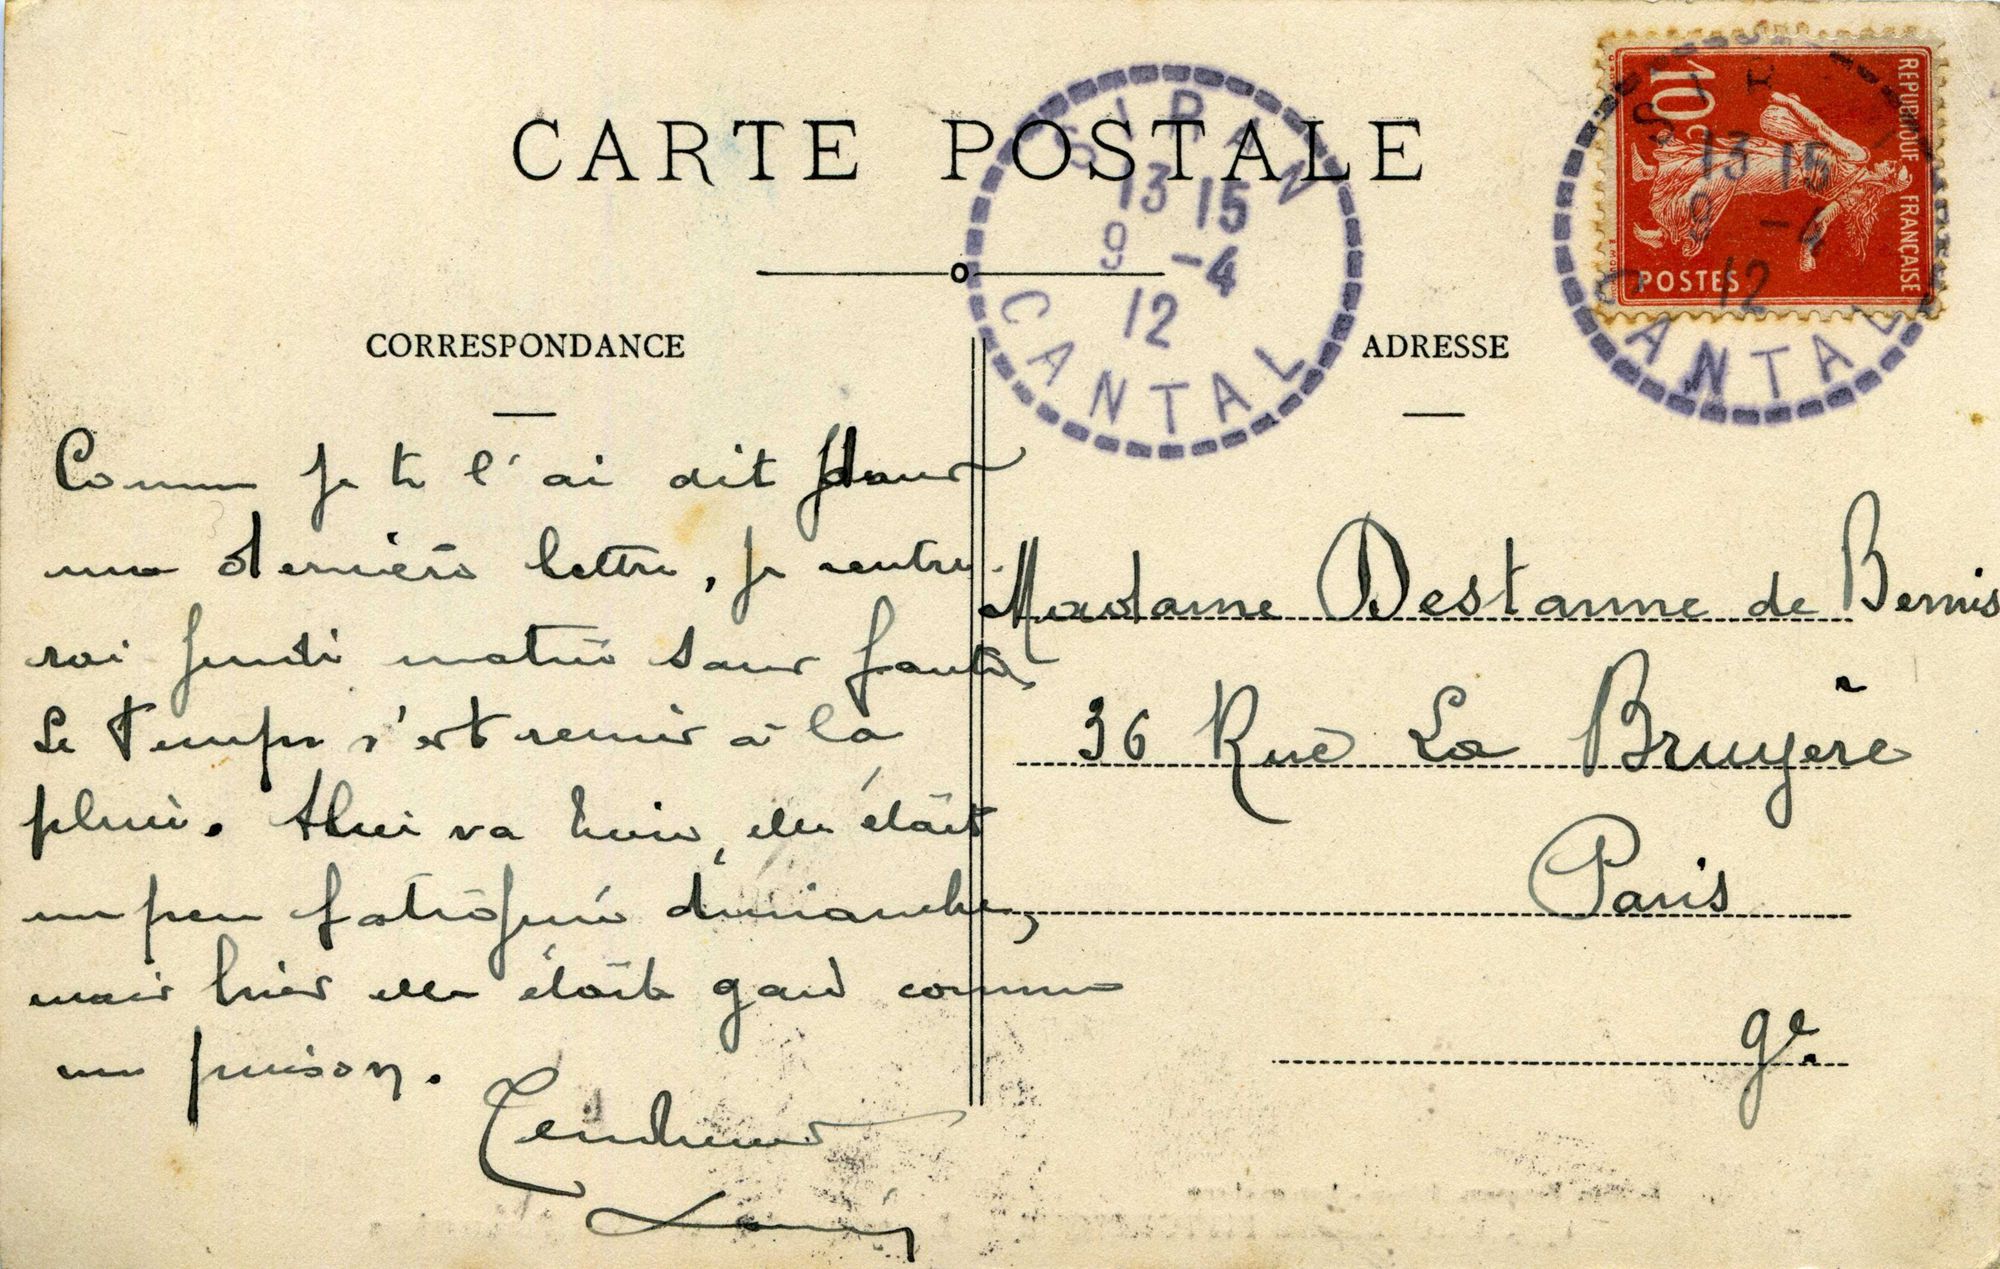 CARTE POSTALE
CORRESPONDANCE
Comme je te l'ai dit dans
ma dernière lettre, je rentre-
rai jeudi matin sans faute.
Le Temps s'est remis à la
pluie. va bien, elle était
un peu fatiguée dimanche,
mais hier elle était gaie comme
un pinson.
Tendresses
ADRESSE
Madame Destanne de Bernis
36 Rue La Bruyère
Paris
9e
SIRAN
13 15
9 -4
12
CANTAL
REPUBLIQUE FRANÇAISE
10c
POSTES
SIRAN
13 15
9 -4
12
CANTAL